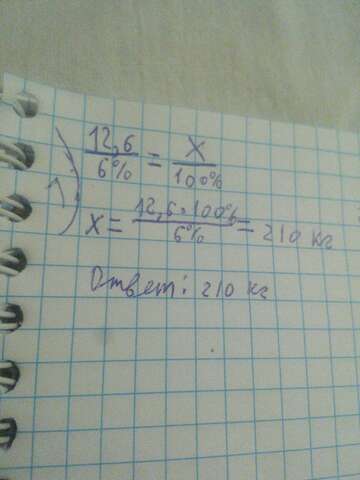 12,6/6% = X/100%
X = 12,6 · 100%/6% = 210 кг
Ответ: 210 кг